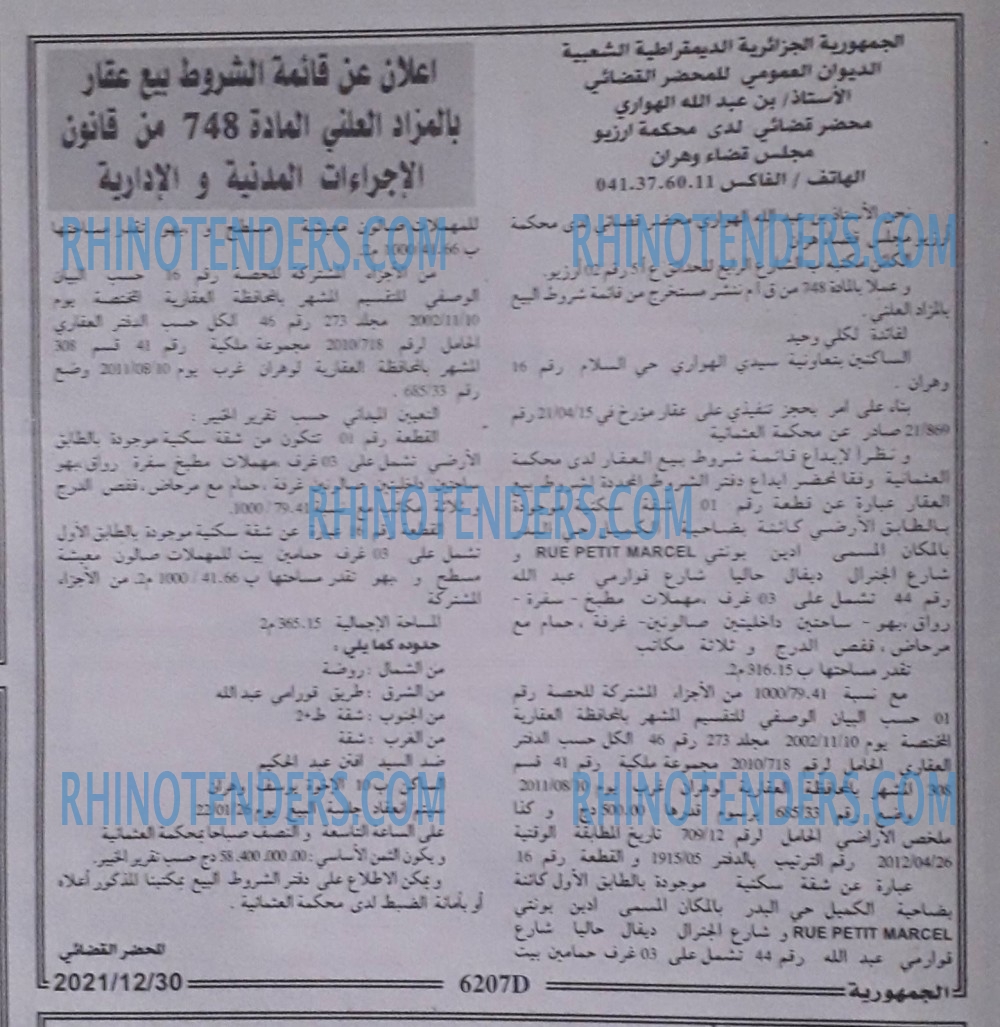 الجمهورية الجزائرية الديمقراطية الشعبية
الديوان العمومي للمحضر القضائي
الأستاذ/ بن عبد الله الهواري
محضر قضائي لدى محكمة ارزيو
مجلس قضاء وهران
الهاتف / الفاكس 041.37.60.11
اعلان عن قائمة الشروط بيع عقار
بالمزاد العلني المادة 748 من قانون
الإجراءات المدنية و الإدارية
نحن الأستاذ بن عبد الله الهواري محضر قضائي لدى محكمة
ارزيو مجلس قضاء وهران
الكائن مكتبه ب الشارع الرابع للحدائق ع 51 رقم 02 أرزيو.
و عملا بالمادة 748 من ق ا م ننشر مستخرج من قائمة شروط البيع
بالمزاد العلني .
لفائدة لكلي وحيد
الساكنين بتعاونية سيدي الهواري حي السلام رقم 16
وهران .
بناء على امر بحجز تنفيذي على عقار مؤرخ في 21/04/15 رقم
21/869 صادر عن محكمة العثمانية
و نظرا لإيداع قائمة شروط بيع العقار لدى محكمة
العثمانية رفقا لمحضر ايداع دفتر الشروط المحددة لشروط بيع
العقار عبارة عن قطعة رقم 01 شقة سكنية موجودة
بالطابق الأرضي كائنة بضاحية الكميل حي البدر
بالمكان المسمى ادين بونتي RUE PETIT MARCEL و
شارع الجنرال ديفال حاليا شارع قوارمي عبد الله
رقم 44 تشمل على 03 غرف ،مهملات مطبخ - سفرة -
رواق،بهو - ساحتين داخليتين صالونين- غرفة ، حمام مع
مرحاض، قفص الدرج و ثلاثة مكاتب
تقدر مساحتها ب 316.15 م2.
مع نسبة 1000/79.41 من الأجزاء المشتركة للحصة رقم
01 حسب البيان الوصفي للتقسيم المشهر بالمحافظة العقارية
المختصة يوم 2002/11/10 مجلد 273 رقم 46 الكل حسب الدفتر
العقاري الحامل لرقم 2010/718 مجموعة ملكية رقم 41 قسم
308 المشهر بالمحافظة العقارية لوهران غرب يوم 2011/08/10
وضع رقم 685/33 برسوم قدرها 500.00 دج و كذا
ملخص الأراضي الحامل لرقم 709/12 تاريخ المطابقة الوقتية
2012/04/26 رقم الترتيب بالدفتر 1915/05 و القطعة رقم 16
عبارة عن شقة سكنية موجودة بالطابق الأول كائنة
بضاحية الكميل حي البدر بالمكان المسمى ادين بونتي
RUE PETIT MARCEL و شارع الجنرال ديفال حاليا شارع
قوارمي عبد الله رقم 44 تشمل على 03 غرف حمامين بيت
للمهملات صالون معيشة مسطح و ،بهو تقدر مساحتها
ب 1000/41.66 م2.
من الأجزاء المشتركة للحصة رقم 16 حسب البيان
الوصفي للتقسيم المشهر بالمحافظة العقارية المختصة يوم
2002/11/10 مجلد 273 رقم 46 الكل حسب الدفتر العقاري
الحامل لرقم 2010/718 مجموعة ملكية رقم 41 قسم 308
المشهر بالمحافظة العقارية لوهران غرب يوم 2011/08/10 وضع
رقم 685/33 .
التعيين الميداني حسب تقرير الخبير:
القطعة رقم 01 تتكون من شقة سكنية موجودة بالطابق
الأرضي تشمل على 03 غرف ،مهملات مطبخ سفرة رواق،بهو
ساحتين داخليتين صالونين غرفة ، حمام مع مرحاض، قفص الدرج
ثلاثة مكاتب مع نسبة 1000/79.41.
القطعة رقم 16 عبارة عن شقة سكنية موجودة بالطابق الأول
تشمل على 03 غرف حمامين بيت للمهملات صالون معيشة
مسطح و ،بهو تقدر مساحتها ب 1000/41.66 م2. من الأجزاء
المشتركة
المساحة الإجمالية 365.15 م2
حدوده كما يلي :
من الشمال : روضة
من الشرق : طريق قورامي عبد الله
من الجنوب : شقة ط+2
من الغرب : شقة
ضد السيد افتن عبد الحكيم
الساكن ب 10 الإخوة يوسف وهران
يتم انعقاد جلسة البيع يوم 22/01/26
على الساعة التاسعة و النصف صباحا بمحكمة العثمانية
و يكون الثمن الأساسي : 58.400.000.00 دج حسب تقرير الخبير.
و يمكن الاطلاع على دفتر الشروط البيع بمكتبنا المذكور أعلاه
أو بأمانة الضبط لدى محكمة العثمانية .
المحضر القضائي
الجمهورية
6207D
2021/12/30
RHINOTENDERS.COM
RHINOTENDERS.COM
RHINOTENDERS.COM
RHINOTENDERS.COM
RHINOTENDERS.COM